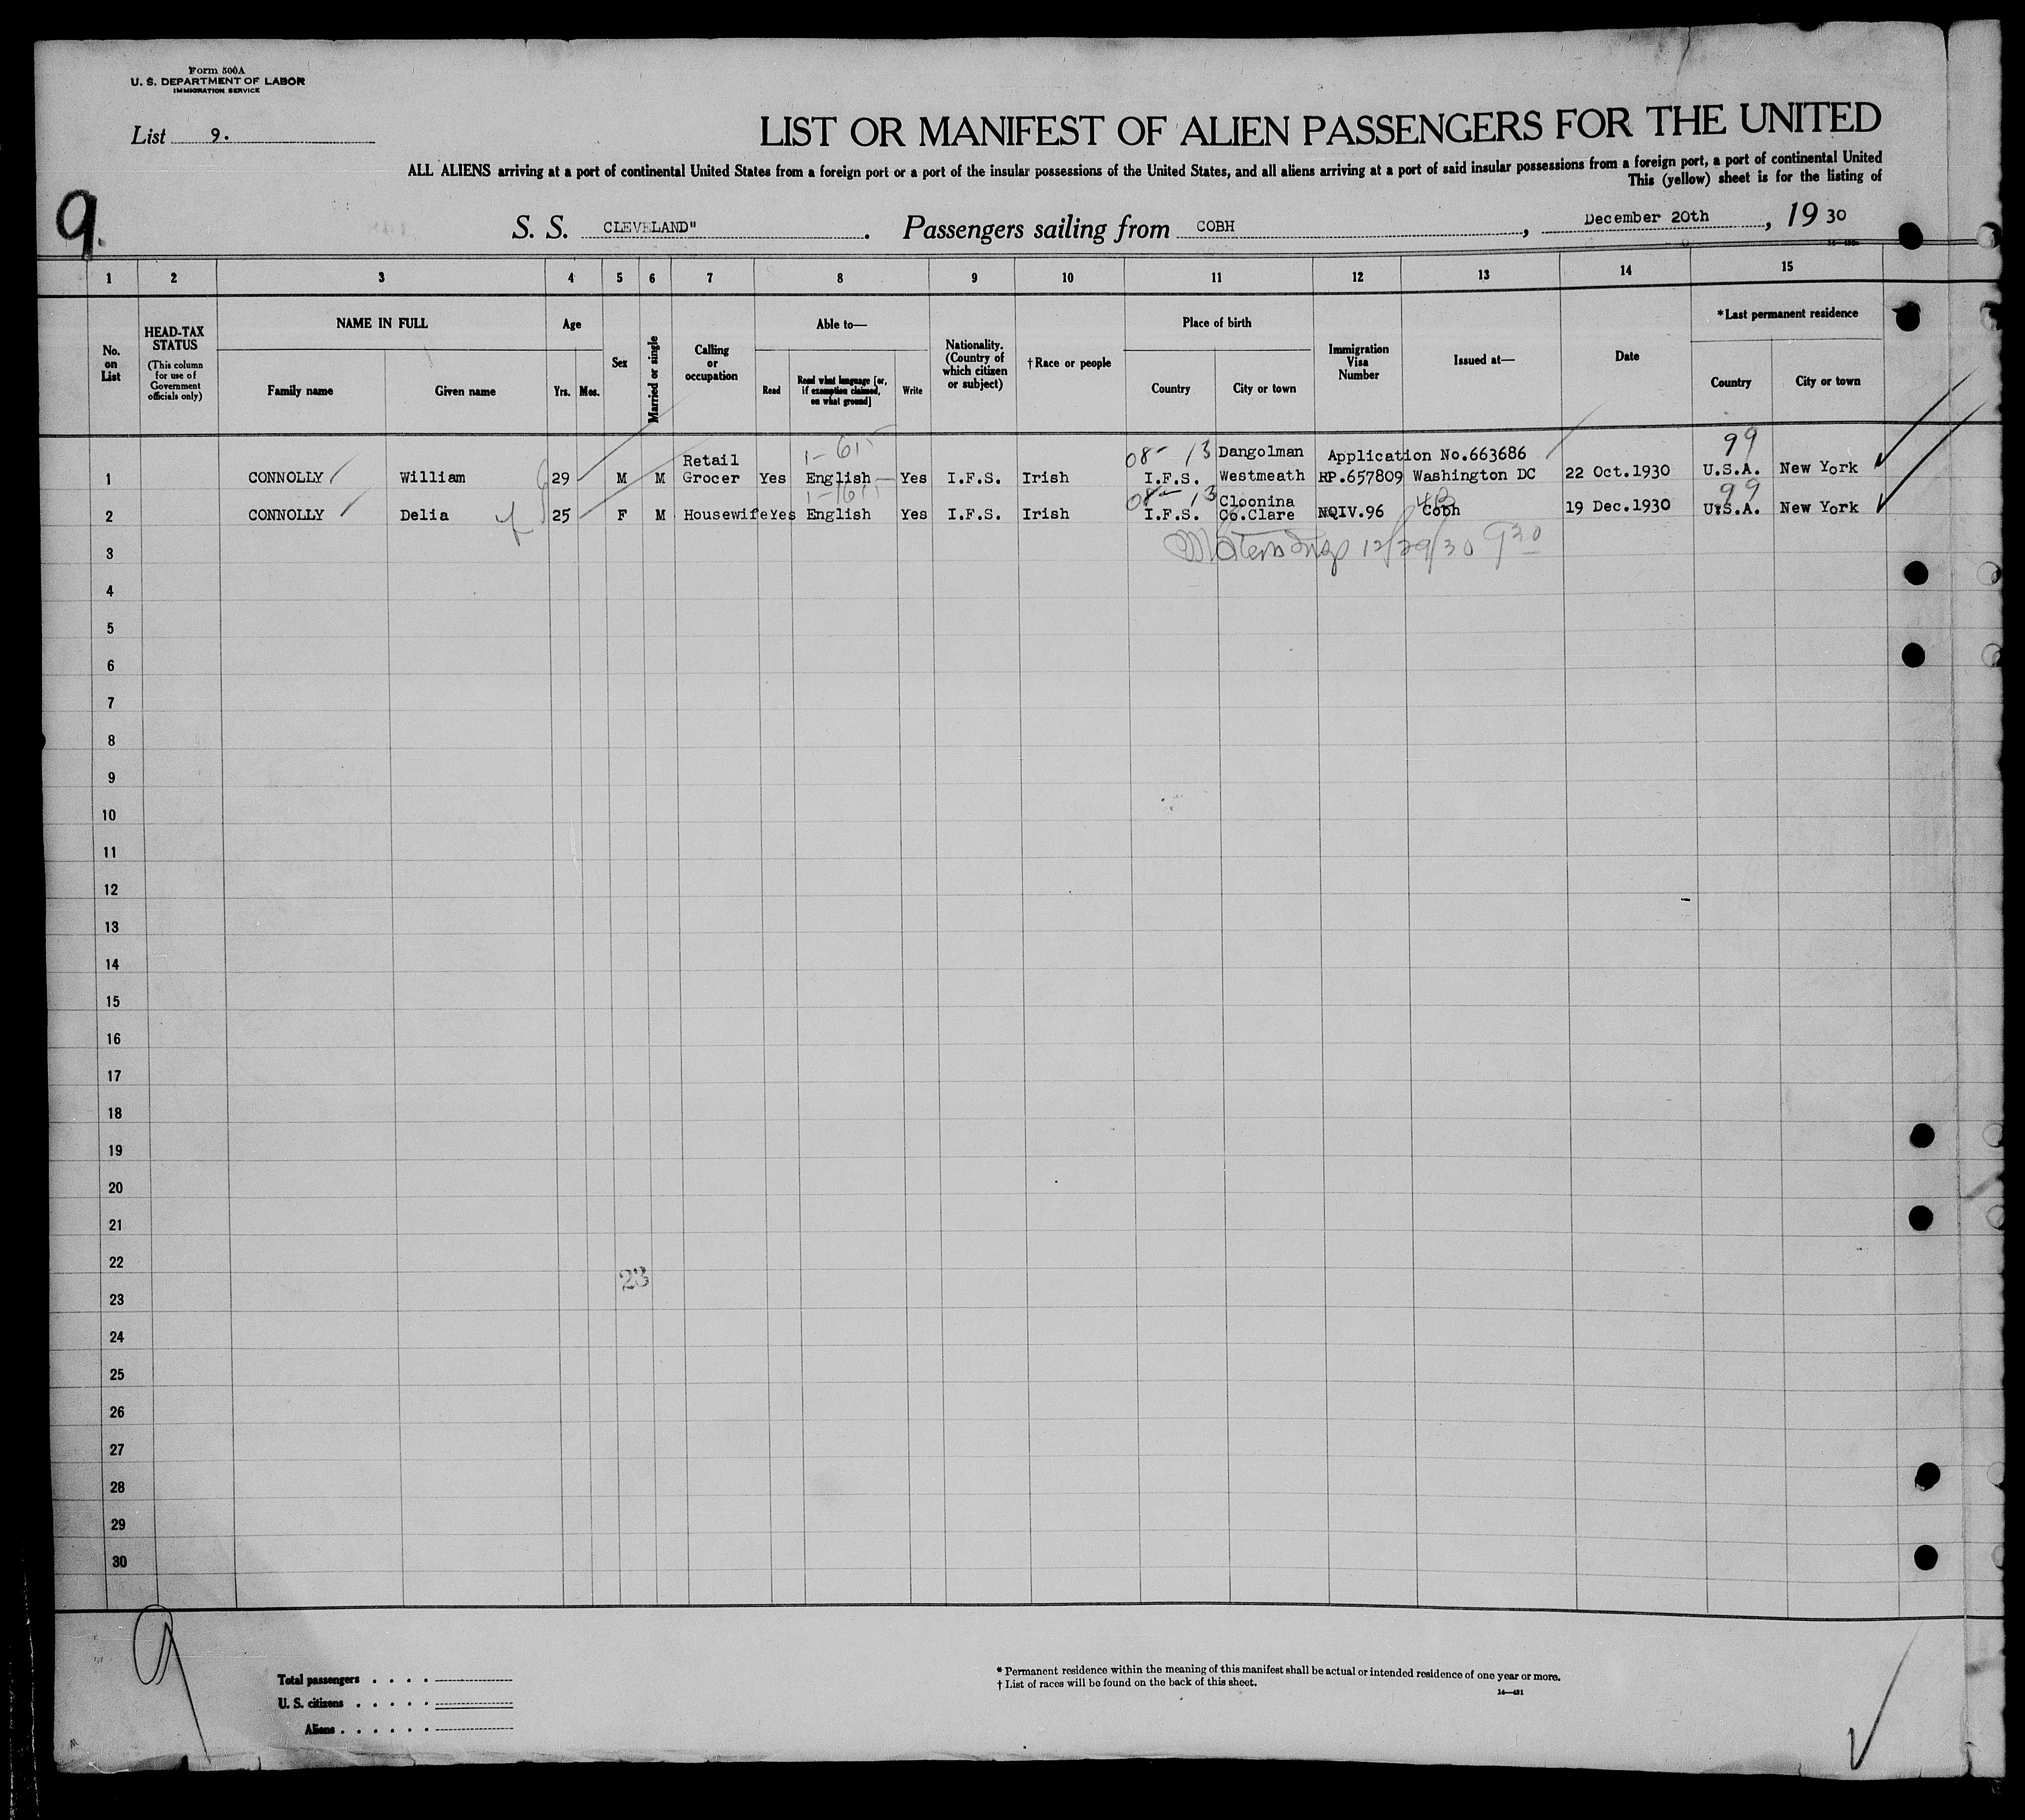 Form 500A
U. S. DEPARTMENT OF LABOR
IMMIGRATION SERVICE
List 9.
LIST OR MANIFEST OF ALIEN PASSENGERS FOR THE UNITED
ALL ALIENS arriving at a port of continental United States from a foreign port or a port of the insular possessions of the United States, and all aliens arriving at a port of said insular possessions from a foreign port, a port of continental United
This (yellow) sheet is for the listing of
9.
S. S. CLEVELAND". Passengers sailing from COBH, December 20th, 19 30
1 2 3 4 5 6 7 8 9 10 11 12 13 14 15
No. on List
HEAD-TAX STATUS (This column for use of Government officials only)
NAME IN FULL
Family name Given name
Age
Yrs. Mos.
Sex
Married or single
Calling or occupation
Able to—
Read Read what language [or, if exemption claimed, on what ground] Write
Nationality. (Country of which citizen or subject)
†Race or people
Place of birth
Country City or town
Immigration Visa Number
Issued at—
Date
*Last permanent residence
Country City or town
1-615 08- 13 99
Retail Dangolman Application No.663686
1 CONNOLLY William 29 M M Grocer Yes English Yes I.F.S. Irish I.F.S. Westmeath RP.657809 Washington DC 22 Oct.1930 U.S.A. New York
08- 13 99
Cloonina
2 CONNOLLY Delia 25 F M Housewife Yes English Yes I.F.S. Irish I.F.S. Co.Clare NQIV.96 Cobh 19 Dec.1930 U.S.A. New York
3 12/29/30 930
4
5
6
7
8
9
10
11
12
13
14
15
16
17
18
19
20
21
22
23
23
24
25
26
27
28
29
30
9
Total passengers . . . .
U. S. citizens . . . . .
Aliens . . . . . .
* Permanent residence within the meaning of this manifest shall be actual or intended residence of one year or more.
† List of races will be found on the back of this sheet.
14—431